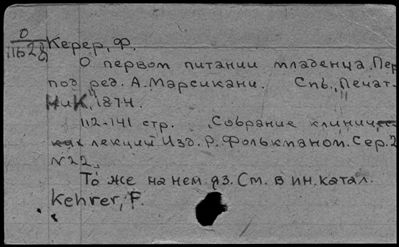 О
1162д
Керер, Ф.
О первом питании младенца. Пер.
под ред. А. Марсикани. Спб., "Печат-
ник", 1874.
112-141 стр. Собрание клиничес-
ких лекций Изд. Р. Фолькманом. Сер. 2
N 22.
То же на нем. яз. См. в ин. катал.
Kehrer, F.